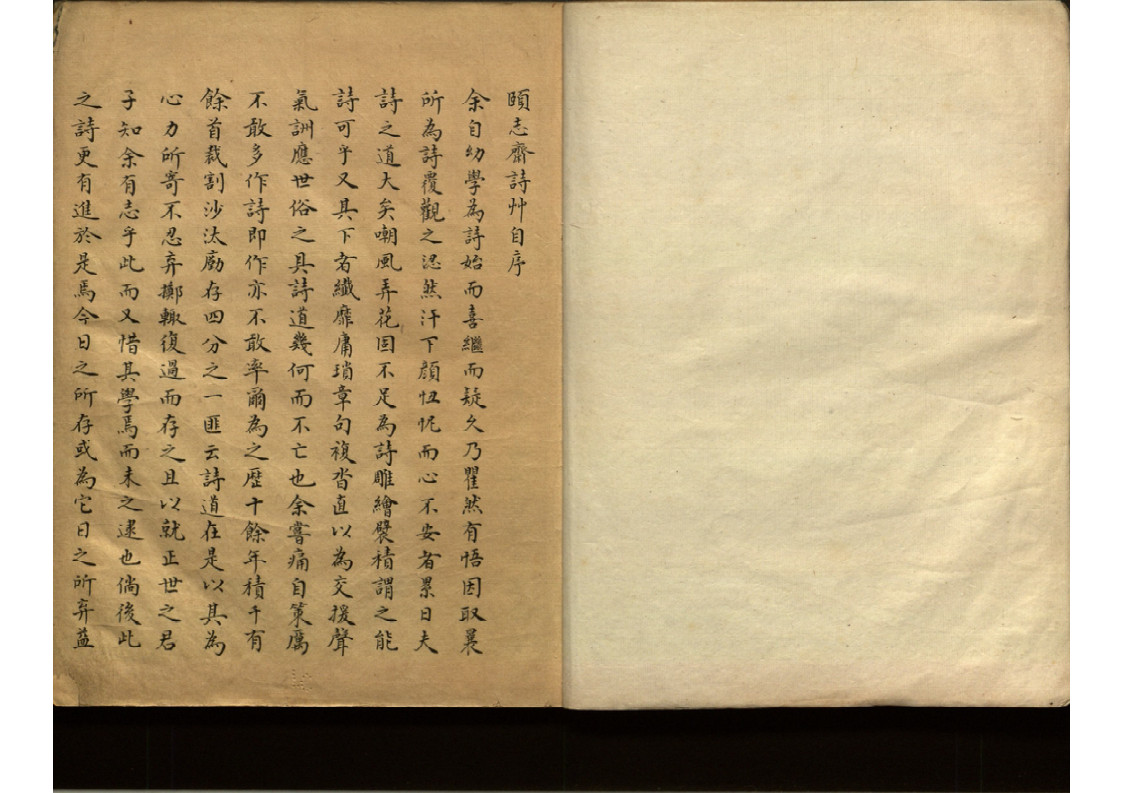 頤志齋詩艸自序
余自幼學為詩始而喜繼而疑久乃瞿然有悟因取曩
所為詩覆觀之涊然汗下顏忸怩而心不安者累日夫
詩之道大矣嘲風弄花固不足為詩雕繪襞積謂之能
詩可乎又其下者纖靡庸瑣章句複沓直以為交援聲
氣訓應世俗之具詩道幾何而不亡也余嘗痛自策厲
不敢多作詩即作亦不敢率爾為之歷十餘年積千有
餘首裁割沙汰勵存四分之一匪云詩道在是以其為
心力所寄不忍弃擲輙復過而存之且以就正世之君
子知余有志乎此而又惜其學焉而未之逮也倘後此
之詩更有進於是焉今日之所存或為它日之所弃葢